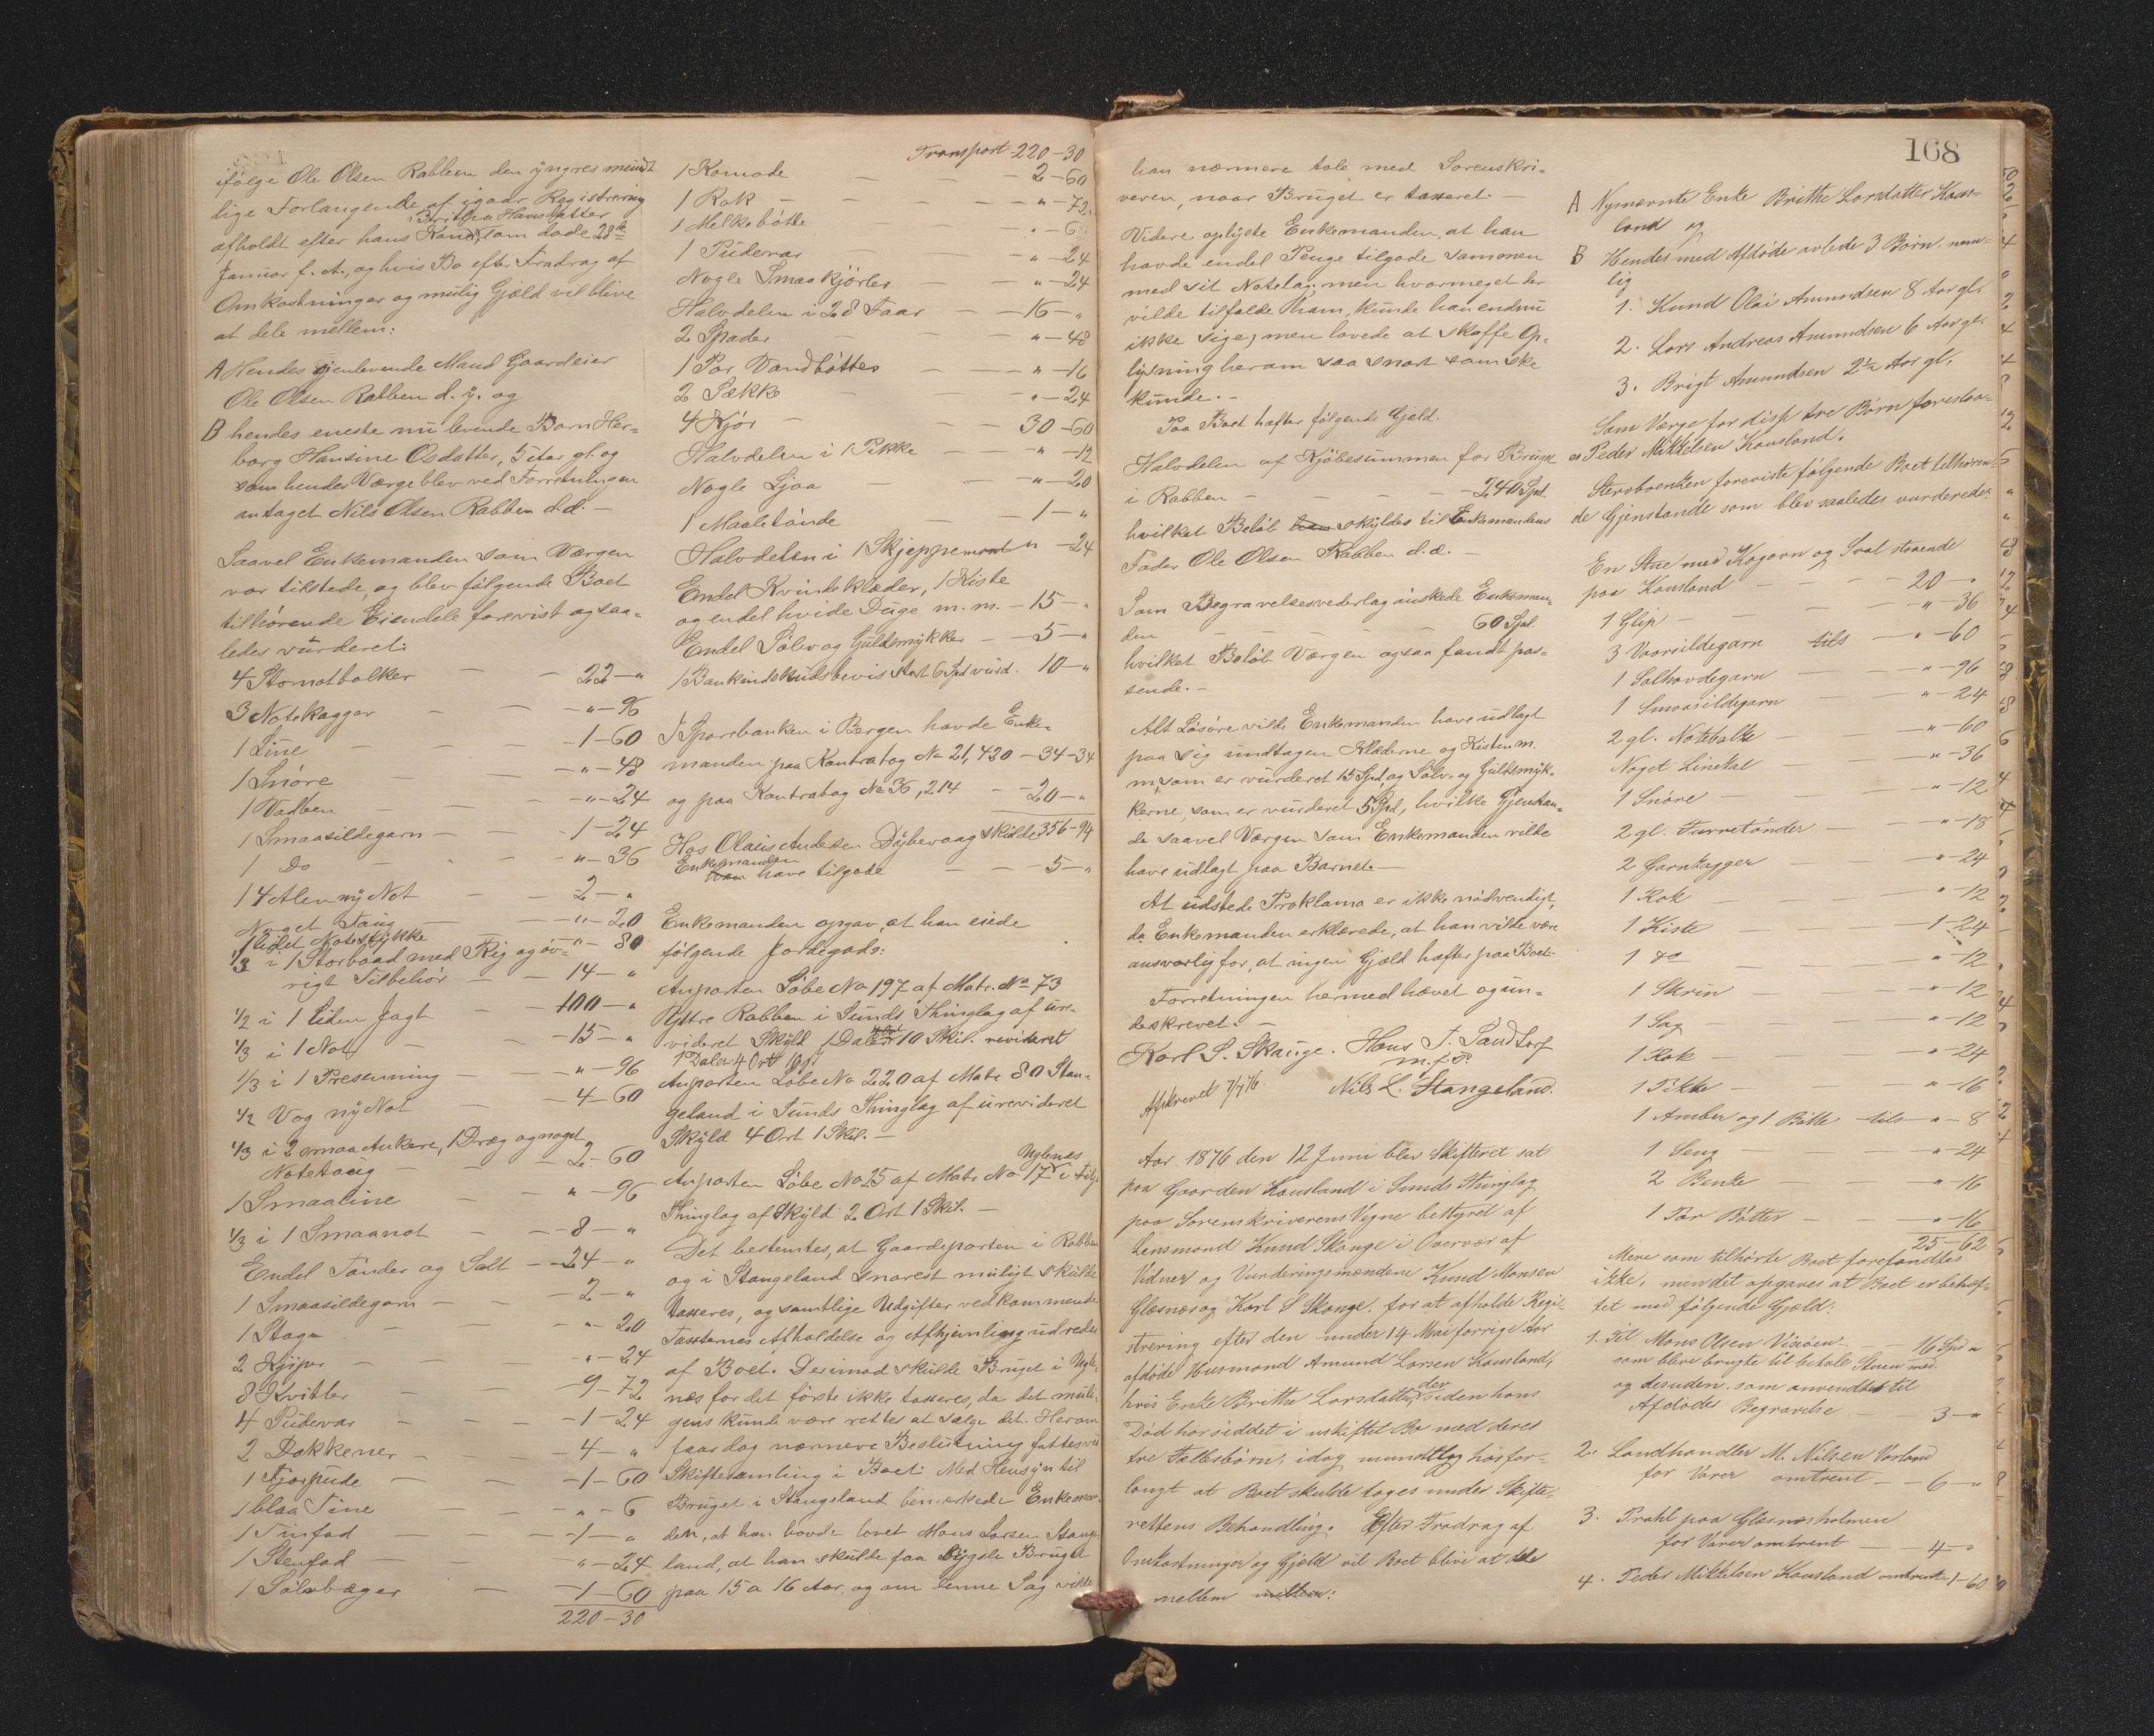 ifølge Ole Olsen Rabben den yngres mundt
lige Forlangende af igaar Registrering
Brithe Hansdatter
afholdt efter hans Kone, som døde 28de
Januar f. A., og hvis Bo efter Fradrag af
Omkostninger og mulig Gjæld vil blive
at dele mellem:
A Hendes gjenlevende Mand Gaardeier
Ole Olsen Rabben d. y. og
B hendes eneste nu levende Barn Her=
borg Hansine Olsdatter, 5 Aar gl. og
som hendes Værge blev ved Forretningen
antaget Nils Olsen Rabben d.d. —
Saavel Enkemanden som Værgen
var tilstede, og blev følgende Boet
tilhørende Eiendele forevist og saa=
ledes vurderet:
4 Stornotbolker — — 22 — "
3 Notekagger — — " — 96
1 Line — — 1 — 60
1 Snøre — — " — 48
1 Vadben — — " — 24
1 Smaasildegarn — — 1 — 24
1 Do — — " — 36
14 Alen ny Not — — 2 — "
Noget Taug — — " — 20
1 lidet Notestykke — " — 80
1/3 i 1 Storbaad med Rig og øv=
rigt Tilbehør — 14 — "
1/2 i 1 liden Jagt — 100 — "
1/3 i 1 Not — — 15 — "
1/3 i 1 Presenning — — " — 96
1/2 Vog ny Not — — 4 — 60
1/3 i 2 smaa Ankere, 1 Dræg og noget
Notetaug — — 2 — 60
1 Smaaline — — " — 96
1/3 i 1 Smaanot — — 8 — "
Endel Tønder og Salt — 24 — "
1 Smaasildegarn — — 2 — "
1 Stage — — " — 20
2 Kjiper — — " — 24
8 Kvitler — — 9 — 72
4 Pudevar — — 1 — 24
2 Dækkener — — 4 — "
1 Fjærpude — — 1 — 60
1 blaa Tine — — " — 6
1 Tinfad — — 1 — "
1 Stenfad — — " — 24
1 Sølvbæger — 1 — 60
220 — 30
Transport 220 — 30
1 Komode — — 2 — 60
1 Rok — — " — 72
1 Melkebøtte — " — 6
1 Pudevar — " — 24
Nogle Smaakjørler — " — 24
Halvdelen i 28 Faar — 16 — "
2 Spader — " — 48
1 Par Vandbøtter — " — 16
2 Sække — " — 24
4 Kjør — — 30 — 60
Halvdelen i 1 Pikke — " — 12
Nogle Ljaa — " — 20
1 Maaletønde — 1 — "
Halvdelen i 1 Skjeppemaal " — 24
Endel Kvindeklæder, 1 Kiste
og endel hvide Duge m. m. — 15 — "
Endel Sølv og Guldsmykker — 5 — "
1 Bankindskudsbevis stort 6 Spd vurd. 10 — "
I Sparebanken i Bergen havde Enke=
manden paa Kontrabog No 21,420 — 34 — 34
og paa Kontrabog No 36,214 — 20 — "
356 — 94
Hos Olaus Andersen Dybevaag skulde
Enkemanden
have tilgode — — 5 — "
Enkemanden opgav, at han eiede
følgende Jordegods:
Anparten Løbe No 197 af Matr. No 73
Yttre Rabben i Sunds Thinglag af ure=
videret Skyld 1 Daler 10 Skil. revideret
1 Daler 4 Ort
Anparten Løbe No 220 af Matr 80 Stan=
geland i Sunds Thinglag af urevideret
Skyld 4 Ort 1 Skil. —
Uglenæs
Anparten Løbe No 25 af Matr No 17 i
Thinglag af Skyld 2 Ort 1 Skil. —
Det bestemtes, at Gaardeparten i Rabben
og i Stangeland snarest muligt skulde
taxeres, og samtlige Udgifter vedkommende
Taxternes Afholdelse og Afhjemling udredes
af Boet. Derimod skulde Bruget i Ugle=
næs for det første ikke taxeres, da det muli=
gens kunde være rettest at sælge det. Herom
faar dog nærmere Beslutning fattes ved
Skiftesamling i Boet. Med Hensyn til
Bruget i Stangeland bemærkede Enkeman=
den, at han havde lovet Mons Larsen Stange=
land, at han skulde faa bygsle Bruget
paa 15 a 16 Aar, og om denne Sag vilde
168
han nærmere tale med Sorenskri=
veren, naar Bruget er taxeret. —
Videre oplyste Enkemanden, at han
havde endel Penge tilgode sammen
med sit Notelag; men hvormeget der
vilde tilfalde ham, kunde han endnu
ikke sige, men lovede at skaffe Op=
lysning herom saa snart som ske
kunde. —
Paa Boet hæfter følgende Gjæld.
Halvdelen af Kjøbesummen for Bruget
i Rabben — — 240 Spd.
hvilket Beløb skyldes til Enkemandens
Fader Ole Olsen Rabben d. æ. —
Som Begravelsesvederlag ønskede Enkeman=
den — — 60 Spd.
hvilket Beløb Værgen ogsaa fandt pas=
sende. —
Alt Løsøre vilde Enkemanden have udlagt
paa sig undtagen Klæderne og Kisten m.
m, som er vurderet 15 Spd, og Sølv- og Guldsmyk=
kerne, som er vurderet 5 Spd, hvilke Gjenstan=
de saavel Værgen som Enkemanden vilde
have udlagt paa Barnet. —
At udstede Proklama er ikke nødvendigt,
da Enkemanden erklærede, at han vilde være
ansvarlig for, at ingen Gjæld hæfter paa Boet.
Forretningen hermed hævet og un=
derskrevet. —
Karl S. Skauge. Hans J. Sandtorf
m. f. P.
Afskrevet 7/7 76. Nils L. Stangeland.
Aar 1876 den 12 Juni blev Skifteret sat
paa Gaarden Kausland i Sunds Thinglag
paa Sorenskriverens Vegne bestyret af
Lensmand Knud Skauge i Overvær af
Vidner og Vurderingsmændene Knud Monsen
Glæsnæs og Karl S Skauge, for at afholde Regi=
strering efter den under 14 Mai forrige Aar
afdøde Husmand Amund Larsen Kausland,
hvis Enke Brithe Larsdatter, der siden hans
Død har siddet i uskiftet Bo med deres
tre Fællesbørn, idag mundtlig har for=
langt at Boet skulde tages under Skifte=
rettens Behandling. Efter Fradrag af
Omkostninger og Gjæld vil Boet blive at dele
mellem:
A Nysnævnte Enke Brithe Larsdatter Kaus=
land og
B Hendes med Afdøde avlede 3 Børn, nem=
lig
1. Knud Olai Amundsen 8 Aar gl.
2. Lars Andreas Amundsen 6 Aar gl.
3. Brigt Amundsen 2 1/2 Aar gl.
Som Værge for disse tre Børn foresloa=
es Peder Mikkelsen Kausland.
Stervboenken foreviste følgende Boet tilhøren=
de Gjenstande som blev saaledes vurderede:
En Stue med Kogovn og Sval staaende
paa Kausland — — 20 — "
1 Glip — — " — 36
3 Vaarsildegarn tils — " — 60
1 Salhovdegarn — " — 96
1 Smaasildegarn — " — 24
2 gl. Notebolke — " — 60
Noget Linetal — " — 36
1 Snøre — " — 12
2 gl. Turretønder — " — 18
2 Garnkagger — " — 24
1 Rok — " — 12
1 Kiste — 1 — 24
1 do — " — 12
1 Skrin — " — 12
1 Sag — " — 12
1 Rok — " — 24
1 Pikke — " — 16
1 Amber og 1 Bøtte tils — " — 8
1 Seng — " — 24
2 Benke — " — 16
1 Par Bøtter — " — 16
25 — 62
Mere som tilhørte Boet forefandtes
ikke, men det opgaves at Boet er behæf=
tet med følgende Gjæld:
1. Til Mons Olsen — 16 Spd "
som blev brugte til betale Stuen med
og desuden, som anvendtes til
Afdødes Begravelse — 3 — "
2. Landhandler M. Nilsen Vorland
for Varer omtrent — 6 — "
3. Prahl paa Glæsnæsholmen
for Varer omtrent — 4 — "
4. Peder Mikkelsen Kausland omtrent 1 — 60